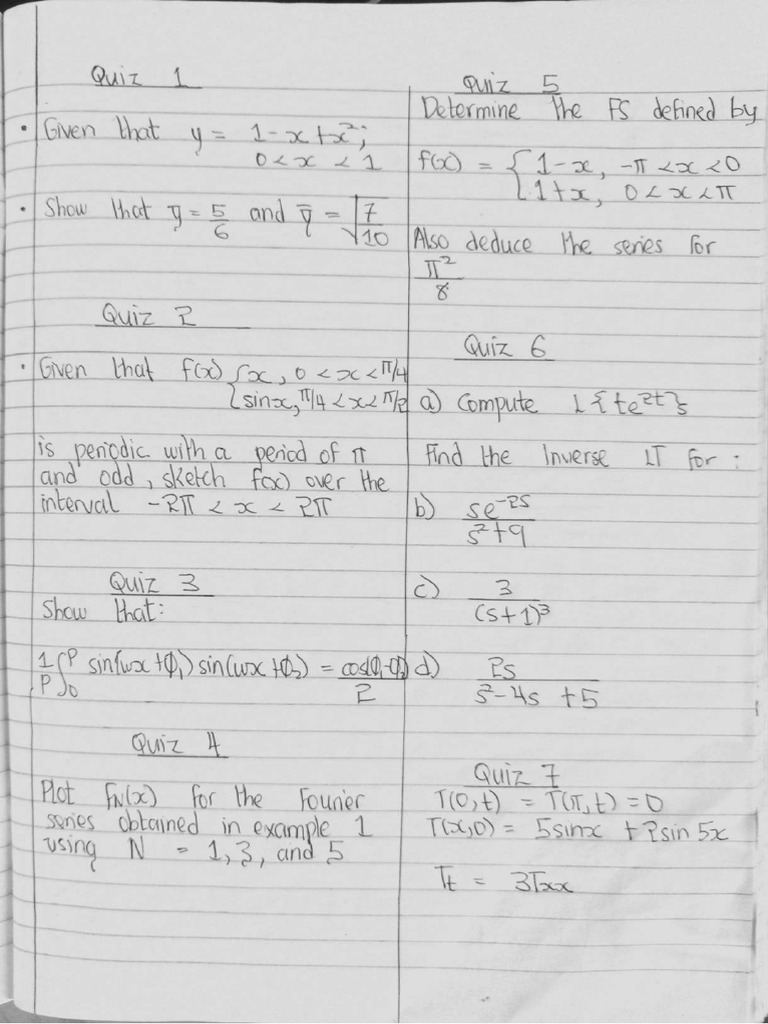 Quiz 1
• Given that y = 1-x+x²;
0 < x < 1
• Show that ȳ = 5/6 and ȳ = √7/10
Quiz 2
• Given that f(x) { x, 0 < x < π/4
sinx, π/4 < x < π/2
is periodic with a period of π
and odd, sketch f(x) over the
interval -2π < x < 2π
Quiz 3
Show that:
1/P ∫₀ᴾ sin(wx+φ₁) sin(wx+φ₂) = cos(φ₁-φ₂)/2
Quiz 4
Plot FN(x) for the Fourier
series obtained in example 1
using N = 1, 3, and 5
Quiz 5
Determine the FS defined by
f(x) = { 1-x, -π < x < 0
1+x, 0 < x < π
Also deduce the series for
π²/8
Quiz 6
a) Compute L{te²ᵗ}
Find the Inverse LT for :
b) se⁻²ˢ/s²+9
c) 3/(s+1)³
d) 2s/s²-4s+5
Quiz 7
T(0,t) = T(π,t) = 0
T(x,0) = 5sinx + 2sin 5x
Tt = 3Txx